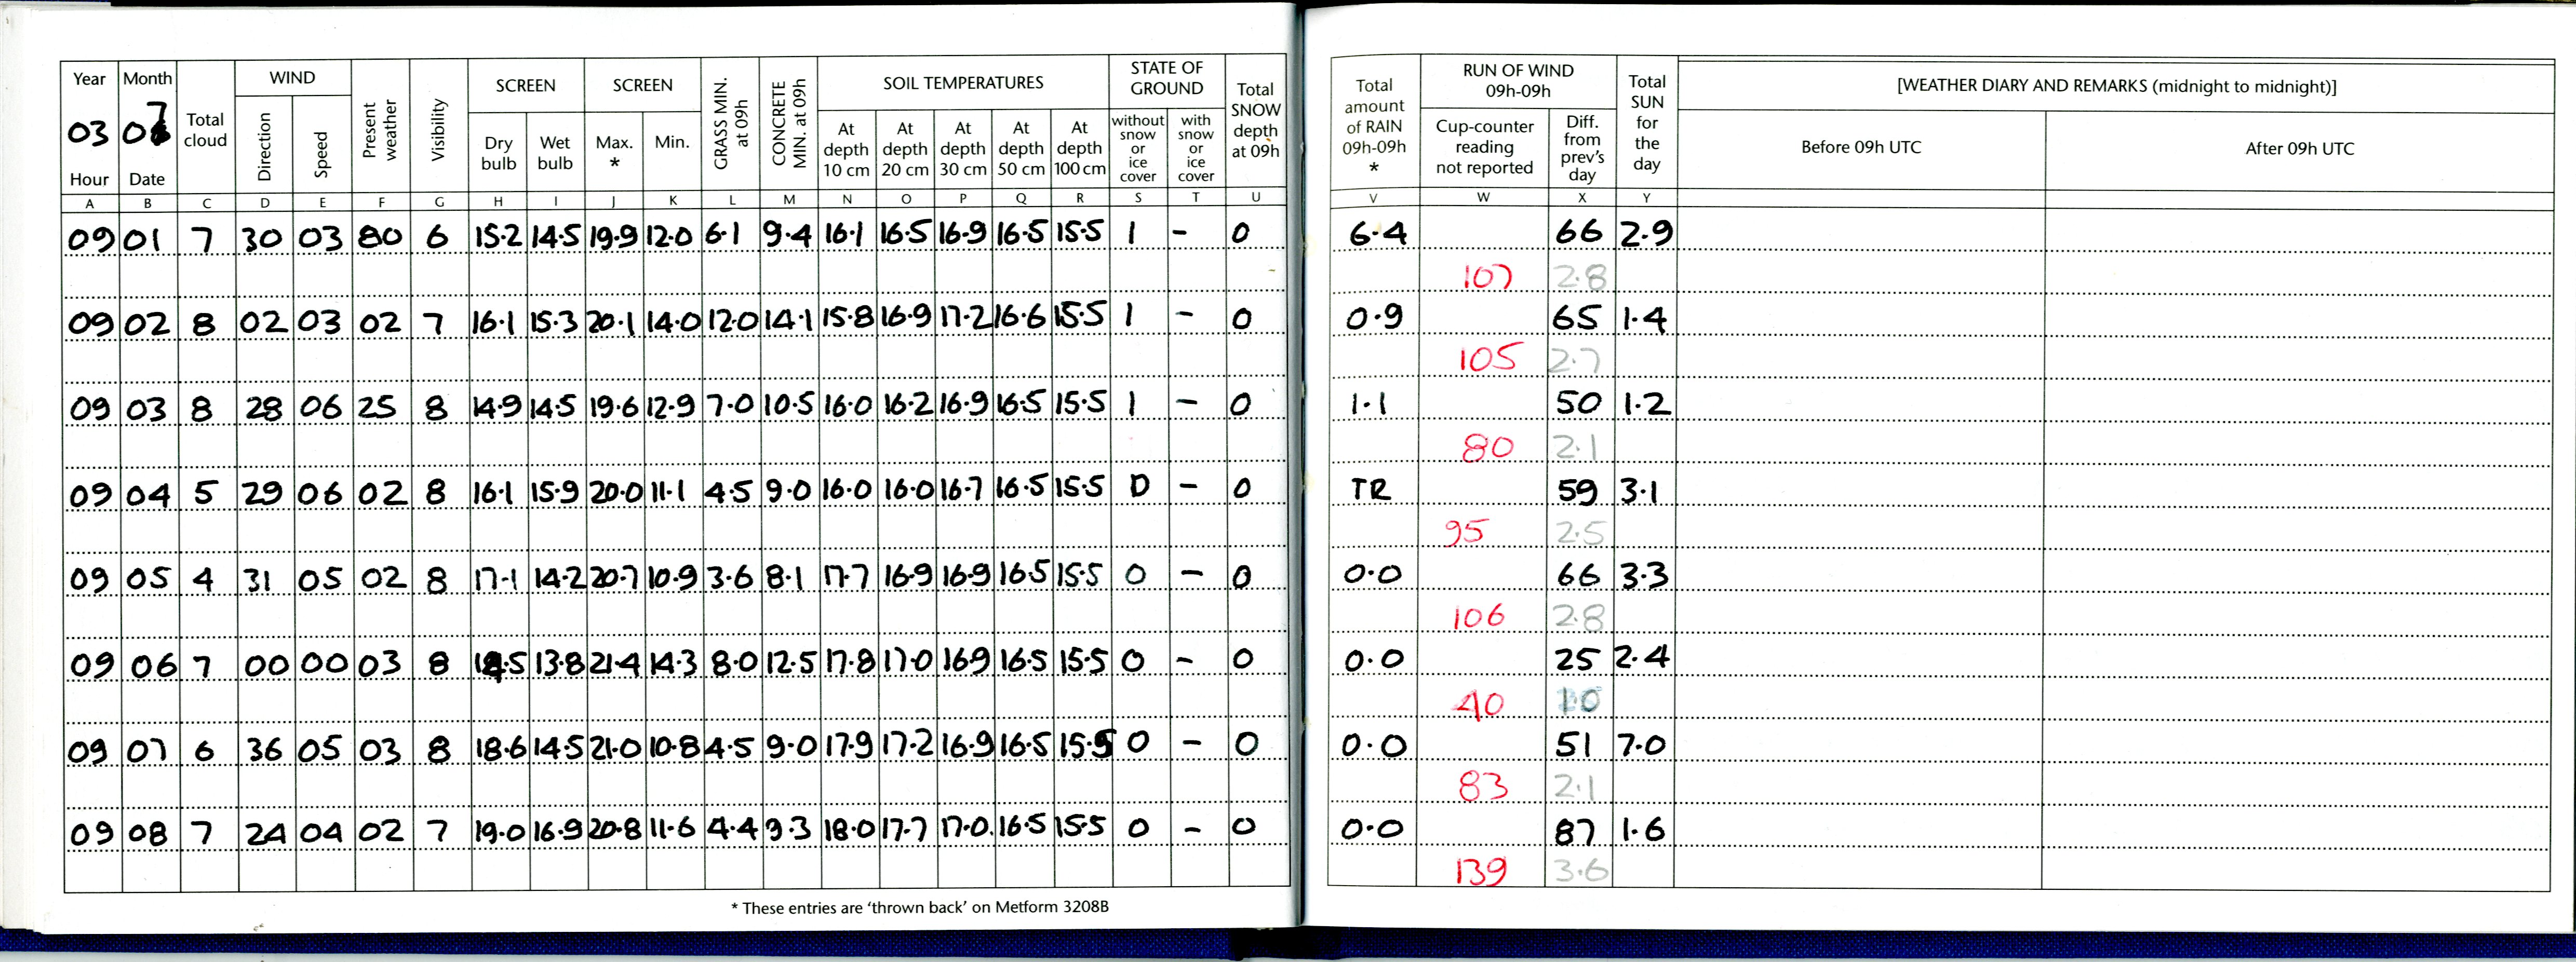 Year Month Total cloud WIND Present weather Visibility SCREEN SCREEN GRASS MIN. at 09h CONCRETE MIN. at 09h SOIL TEMPERATURES STATE OF GROUND Total SNOW depth at 09h Total amount of RAIN 09h-09h * RUN OF WIND 09h-09h Total SUN for the day [WEATHER DIARY AND REMARKS (midnight to midnight)]
03 07 Direction Speed Dry bulb Wet bulb Max. * Min. At depth 10 cm At depth 20 cm At depth 30 cm At depth 50 cm At depth 100 cm without snow or ice cover with snow or ice cover Cup-counter reading not reported Diff. from prev's day Before 09h UTC After 09h UTC
Hour Date
A B C D E F G H I J K L M N O P Q R S T U V W X Y
09 01 7 30 03 80 6 15.2 14.5 19.9 12.0 6.1 9.4 16.1 16.5 16.9 16.5 15.5 1 - 0 6.4 66 2.9
107 2.8
09 02 8 02 03 02 7 16.1 15.3 20.1 14.0 12.0 14.1 15.8 16.9 17.2 16.6 15.5 1 - 0 0.9 65 1.4
105 2.7
09 03 8 28 06 25 8 14.9 14.5 19.6 12.9 7.0 10.5 16.0 16.2 16.9 16.5 15.5 1 - 0 1.1 50 1.2
80 2.1
09 04 5 29 06 02 8 16.1 15.9 20.0 11.1 4.5 9.0 16.0 16.0 16.7 16.5 15.5 0 - 0 TR 59 3.1
95 2.5
09 05 4 31 05 02 8 17.1 14.2 20.7 10.9 3.6 8.1 17.7 16.9 16.9 16.5 15.5 0 - 0 0.0 66 3.3
106 2.8
09 06 7 00 00 03 8 13.8 21.4 14.3 8.0 12.5 17.8 17.0 16.9 16.5 15.5 0 - 0 0.0 25 2.4
40
09 07 6 36 05 03 8 18.6 14.5 21.0 10.8 4.5 9.0 17.9 17.2 16.9 16.5 15.5 0 - 0 0.0 51 7.0
83 2.1
09 08 7 24 04 02 7 19.0 16.9 20.8 11.6 4.4 9.3 18.0 17.7 17.0 16.5 15.5 0 - 0 0.0 87 1.6
139 3.6
* These entries are 'thrown back' on Metform 3208B